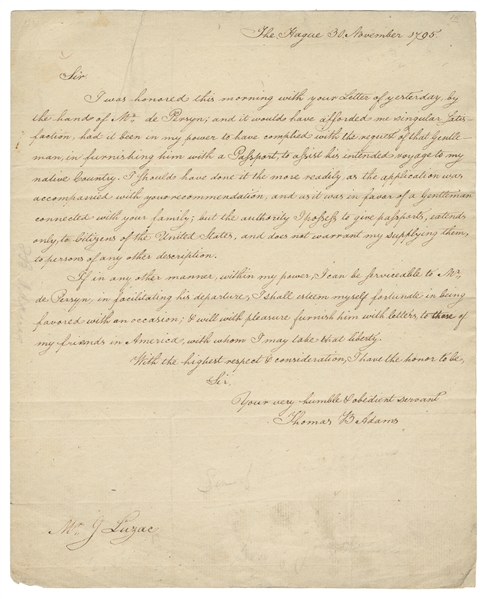 The Hague 30. November 1795.
Sir
I was honored this morning with your Letter of yesterday, by
the hands of Mr. de Perryn; and it would have afforded me singular Satis-
faction, had it been in my power to have complied with the request of that Gentle-
man, in furnishing him with a Passport, to assist his intended voyage to my
native Country. I should have done it the more readily, as the application was
accompanied with your recommendation, and as it was in favor of a Gentleman
connected with your family; but the authority I possess to give passports, extends
only, to Citizens of the United States, and does not warrant my supplying them,
to persons of any other description.
If in any other manner, within my power, I can be serviceable to Mr.
de Perryn, in facilitating his departure, I shall esteem myself fortunate in being
favored with an occasion; & will with pleasure furnish him with letters, to those of
my friends in America, with whom I may take that liberty.
With the highest respect & consideration, I have the honor to be,
Sir.
Your very humble & obedient servant
Thomas B Adams
Mr. J Luzac